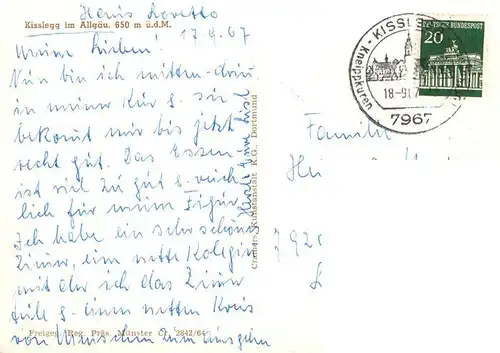 Haus Loretto
Kisslegg im Allgäu. 650 m ü.d.M.
17.9.67
Meine Lieben!
Nun bin ich mitten drin
in meiner Kur u. sie
bekommt mir bis jetzt
recht gut. Das Essen
ist viel zu gut u. reich-
lich für meine Figur,
Ich habe ein sehr schönes
Zimer, eine nette Kolegin
mit der ich das Zimer
teile u. einen netten Kreis
von Menschen zum ausgehen
Herzl. Eure
Cramers Kunstanstalt K.G. Dortmund
Freigeg. Reg. Präs. Münster Cr. 2842/64
KISSL
Kneippkuren
18-9
7967
DEUTSCHE BUNDESPOST
20
Familie